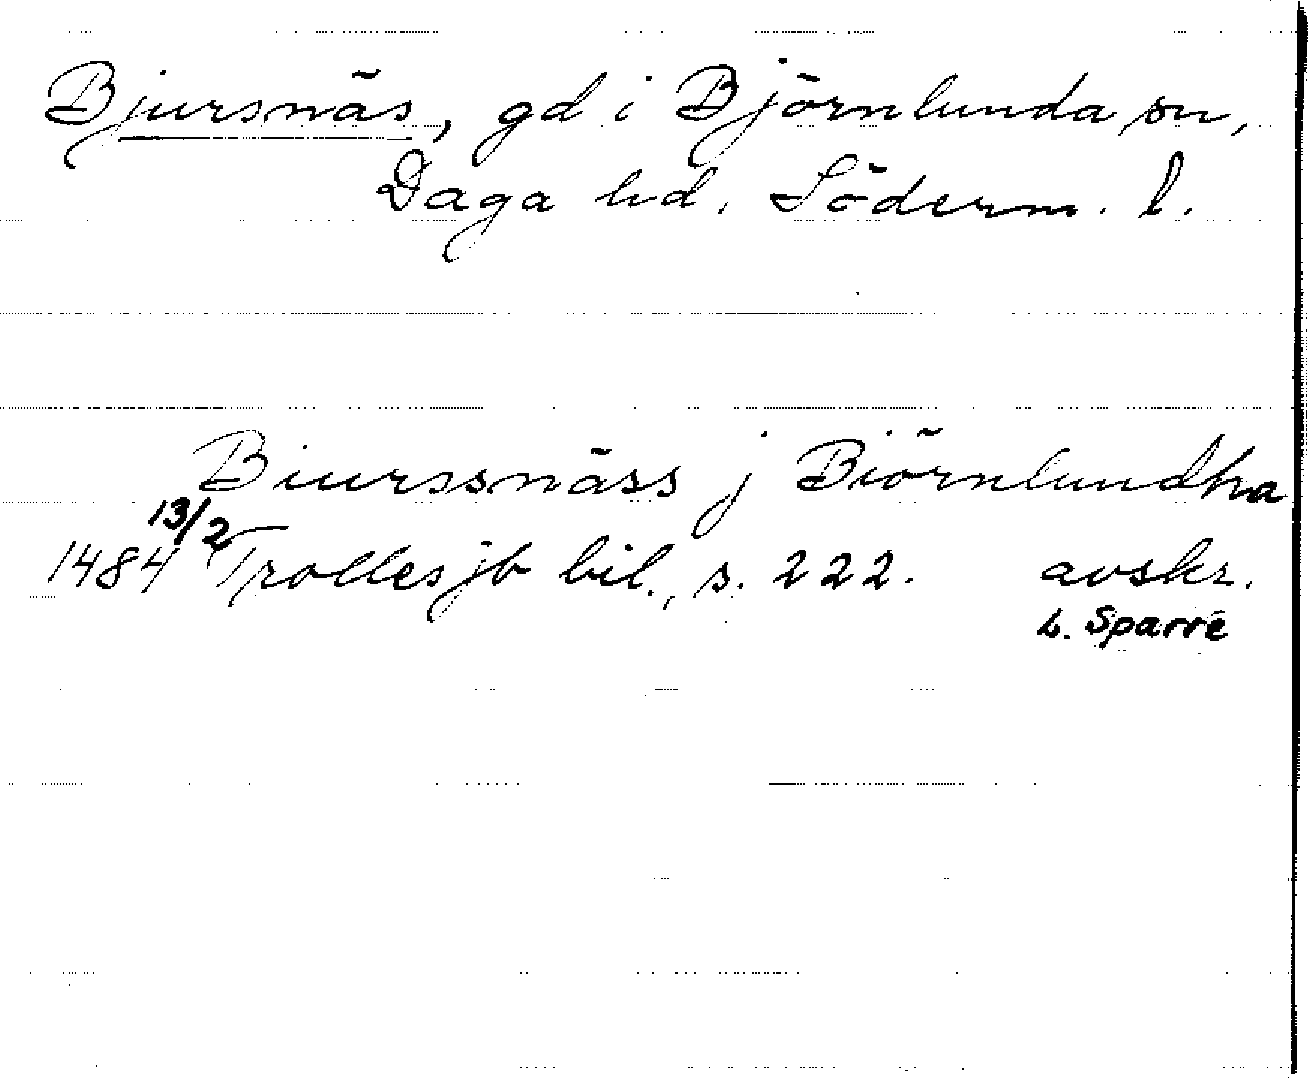 Bjursnäs, gd i Björnlunda sn,
Daga hd. Söderm. l.
Biurssnäss j Biörnlundha
1484 13/2 Trolles jb bil., s. 222. avskr.
L. Sparre